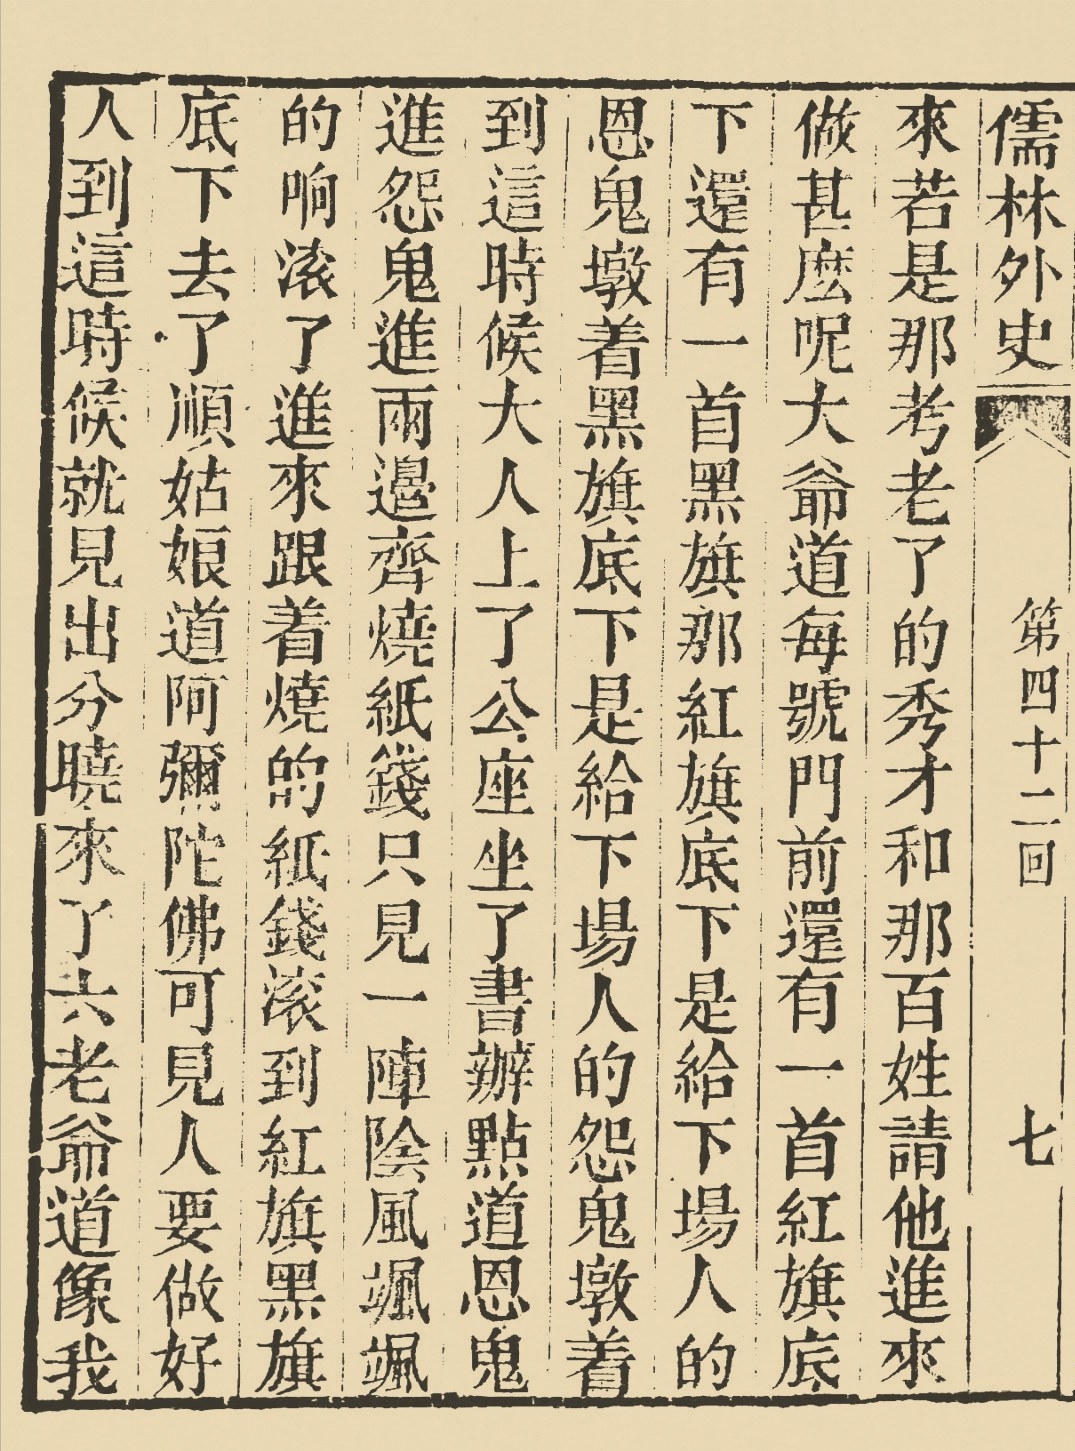 儒林外史 第四十二回 七
來若是那考老了的秀才和那百姓請他進來
做甚麽呢大爺道每號門前還有一首紅旗底
下還有一首黑旗那紅旗底下是給下場人的
恩鬼墩着黑旗底下是給下場人的怨鬼墩着
到這時候大人上了公座坐了書辦點道恩鬼
進怨鬼進兩邊齊燒紙錢只見一陣陰風颯颯
的响滚了進來跟着燒的紙錢滚到紅旗黑旗
底下去了順姑娘道阿彌陀佛可見人要做好
人到這時候就見出分曉來了六老爺道像我